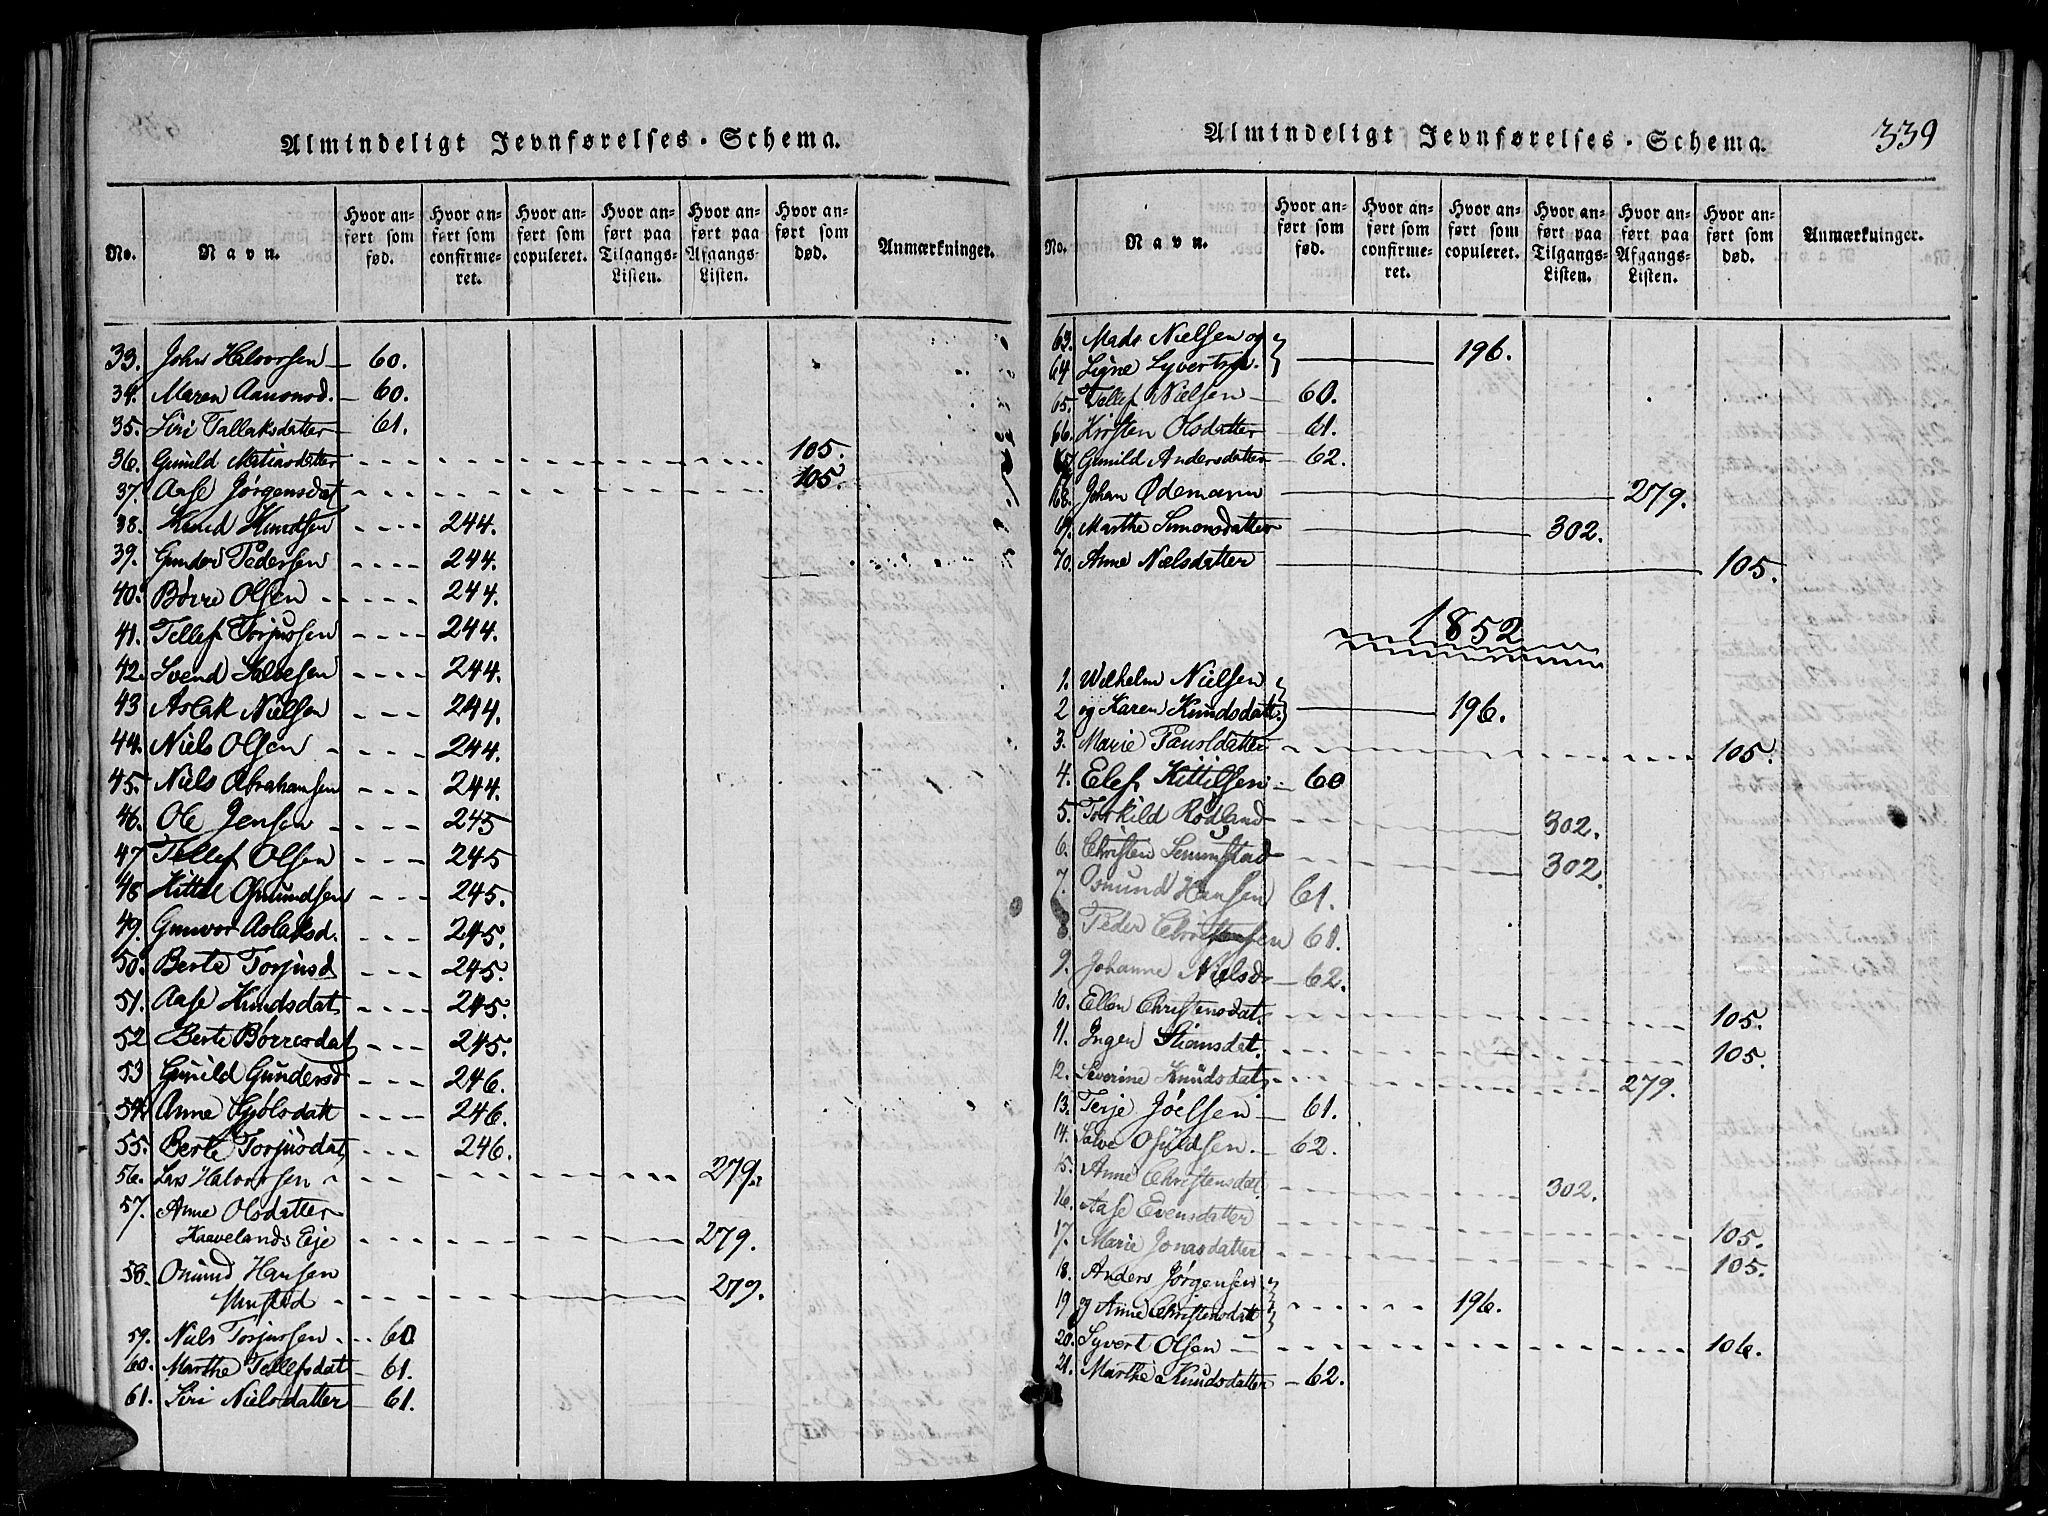 Almindeligt Jevnførelses-Schema.
No. Navn. Hvor anført som fød. Hvor anført som confirmeret. Hvor anført som copuleret. Hvor anført paa Tilgangs-Listen. Hvor anført paa Afgangs-Listen. Hvor anført som død. Anmærkninger.
33. John Halvorsen 60.
34. Maren Aanonsd. 60.
35. Siri Tallaksdatter 61.
36. Gunild Matiasdatter 105.
37. Aase Jørgensdat 105.
38. Knud Knudsen 244.
39. Gunder Pedersen 244.
40. Børre Olsen 244.
41. Tellef Torjussen 244.
42. Svend 244.
43 Aslak Nielsen 244.
44. Niels Olsen 244.
45. Niels Abrahamsen 244.
46. Ole Jensen 245
47 Tellef Olsen 245
48 Kittel Osmundsen 245.
49. Gunvor Aslaksd. 245.
50. Berte Torjusd 245.
51. Aase Knudsdat 245.
52 Berte Børresdat 245.
53 Gunild Gundersd 246.
54 Anne 246.
55. Berte Torjusdat 246.
56. Lars Halvorsen 279.
57. Anne Olsdatter
Haavelands Eje 279.
58. Osmund Hansen
279.
59. Niels Torjussen 60
60. Marthe Tellefsdat 61.
61. Siri Nielsdatter 61.
Almindeligt Jevnførelses-Schema. 339
No. Navn. Hvor anført som fød. Hvor anført som confirmeret. Hvor anført som copuleret. Hvor anført paa Tilgangs-Listen. Hvor anført paa Afgangs-Listen. Hvor anført som død. Anmærkninger.
63. Mads Nielsen og
64 Signe 196.
65. Tellef Nielsen 60.
66. Kirsten Olsdatter 61.
67 Gunild Andersdatter 62.
68. Johan Ødemann 279.
69. Marthe Simonsdatter 302.
70. Anne Nielsdatter 105.
1852
1. Wilhelm Nielsen
2 og Karen Knudsdatt. 196.
3. Marie Paulsdatter 105.
4. Elef Kittilsen 60
5. Torkild Rødland 302.
6. Christen 302.
7. Osmund Hansen 61.
8 Peder Christensen 61.
9. Johanne Nielsd 62.
10. Ellen Christensdat. 105.
11. Inger Stiansdat. 105.
12. Severine Knudsdat 279.
13. Terje Joelsen 61.
14. Salve Osuldsen. 62.
15. Anne Christensdat 302.
16. Aase Evensdatter
17. Marie Jonasdatter 105.
18. Anders Jørgensen 105.
19 og Anne Christensdatt 196.
20. Syvert Olsen 106.
21. Marthe Knudsdatter 62.